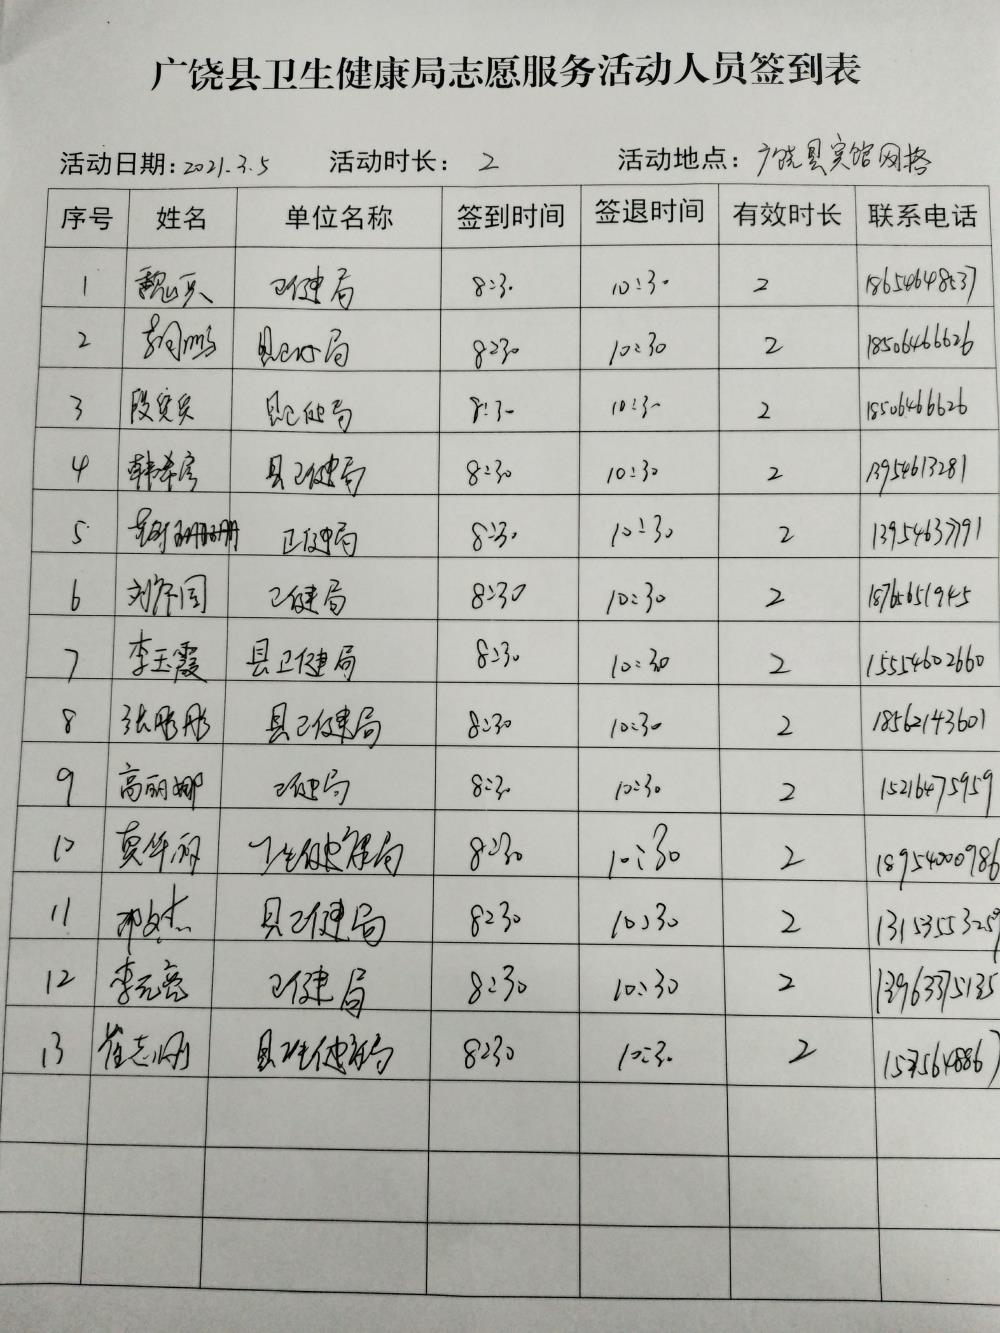 广饶县卫生健康局志愿服务活动人员签到表
活动日期：2021.3.5 活动时长： 2 活动地点：广饶县宾馆网格
序号 姓名 单位名称 签到时间 签退时间 有效时长 联系电话
1 卫健局 8:30 10:30 2 18654648537
2 县卫健局 8:30 10:30 2 18506466626
3 段宾宾 县卫健局 8:30 10:30 2 18506466626
4 韩希彦 县卫健局 8:30 10:30 2 13954613281
5 卫健局 8:30 10:30 2 13954637791
6 卫健局 8:30 10:30 2 18765651945
7 李玉霞 县卫健局 8:30 10:30 2 15554602660
8 张彤彤 县卫健局 8:30 10:30 2 18562143601
9 高丽娜 卫健局 8:30 10:30 2 15216475959
10 卫生健康局 8:30 10:30 2 18954000986
11 邓文杰 县卫健局 8:30 10:30 2 13153553259
12 李元亮 卫健局 8:30 10:30 2 13963375135
13 崔志刚 县卫生健康局 8:30 10:30 2